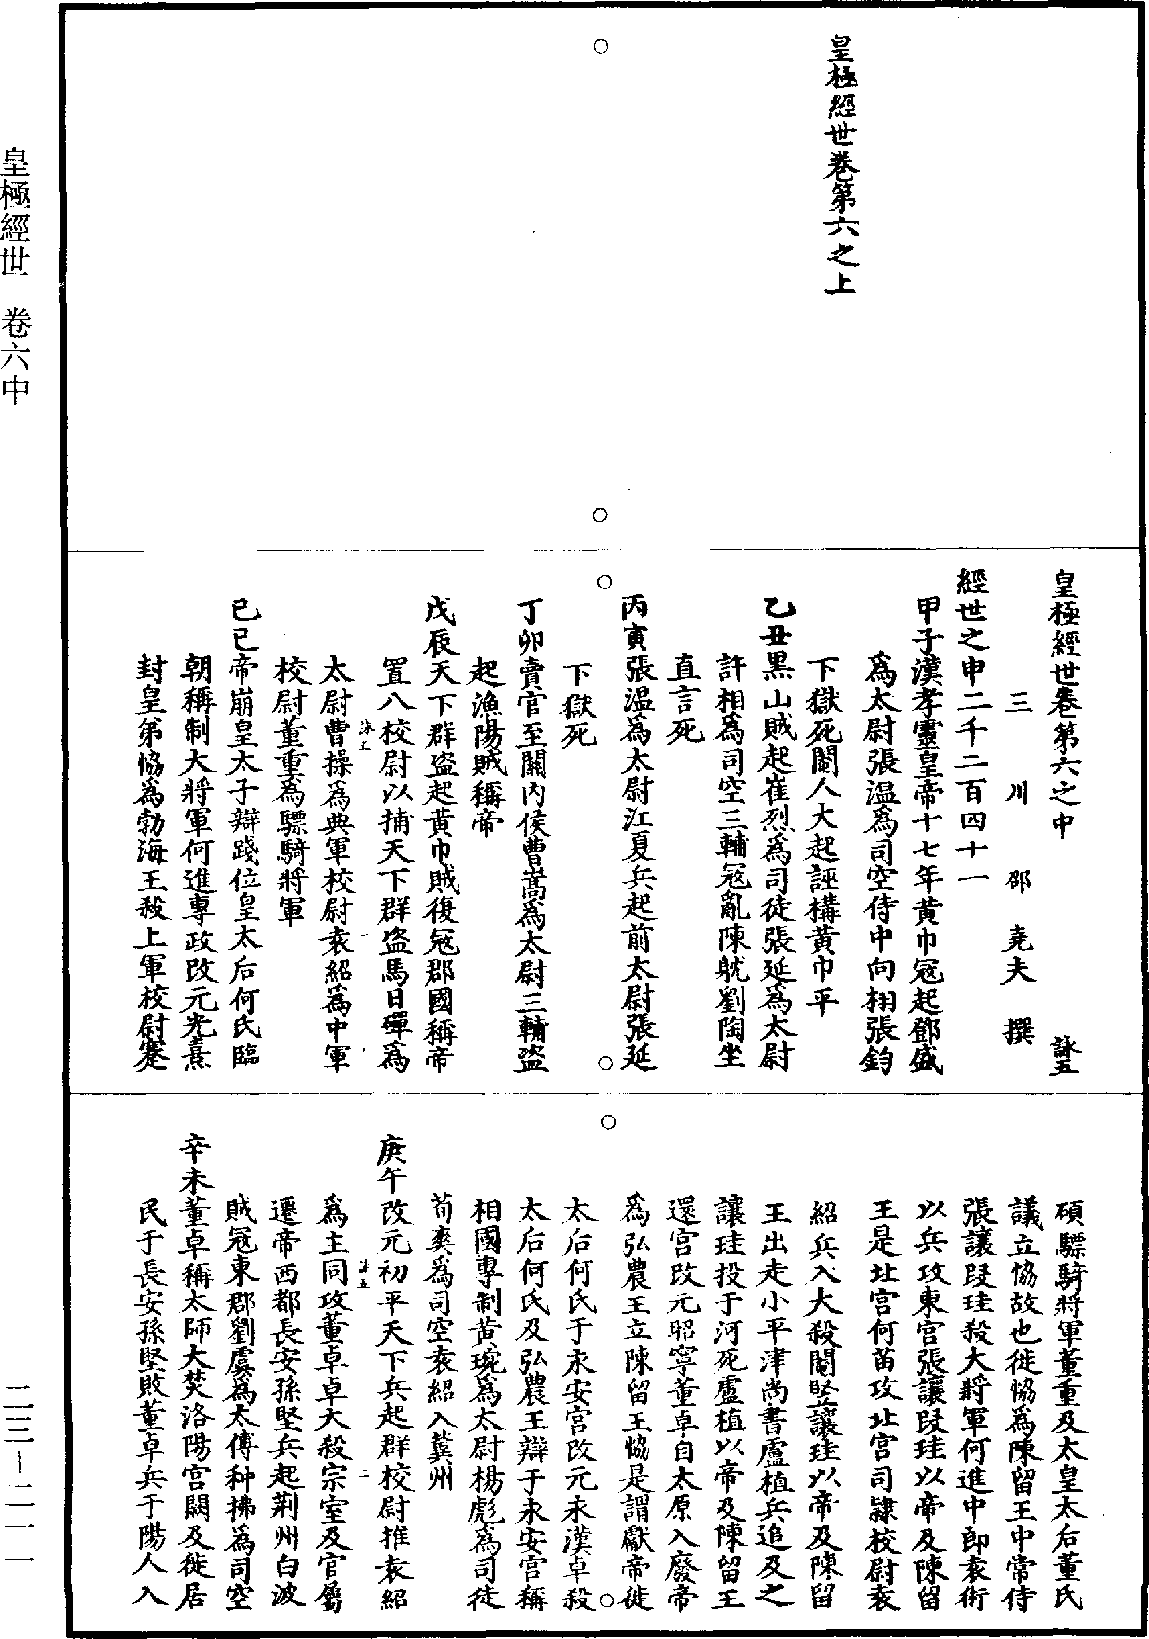 皇極經世　卷六中
皇極經世卷第六之上
皇極經世卷第六之中　詠五
三川邵堯夫撰
經世之申二千二百四十一
甲子漢孝靈皇帝十七年黃巾冦起鄧盛
爲太尉張溫爲司空侍中向栩張鈞
下獄死閹人大起誣構黃巾平
乙丑黑山賊起崔烈爲司徒張延爲太尉
許相爲司空三輔冦亂陳躭劉陶坐
直言死
丙寅張溫爲太尉江夏兵起前太尉張延
下獄死
丁卯賣官至關內侯曹嵩爲太尉三輔盜
起漁陽賊稱帝
戊辰天下群盜起黃巾賊復冦郡國稱帝
置八校尉以捕天下群盜馬日磾爲
太尉曹操爲典軍校尉袁紹爲中軍
校尉董重爲驃騎將軍
己巳帝崩皇太子辯踐位皇太后何氏臨
朝稱制大將軍何進專政改元光熹
封皇弟協爲勃海王殺上軍校尉蹇
碩驃騎將軍董重及太皇太后董氏
議立協故也徙協爲陳留王中常侍
張讓段珪殺大將軍何進中郎袁術
以兵攻東宮張讓段珪以帝及陳留
王是北宮何苗攻北宮司隸校尉袁
紹兵入大殺閹竪讓珪以帝及陳留
王出走小平津尚書盧植兵追及之
讓珪投于河死盧植以帝及陳留王
還宮改元昭寧董卓自太原入廢帝
爲弘農王立陳留王協是謂獻帝徙
太后何氏于永安宮改元永漢卓殺
太后何氏及弘農王辯于永安宮稱
相國專制黃琬爲太尉楊彪爲司徒
荀爽爲司空袁紹入冀州
庚午改元初平天下兵起群校尉推袁紹
爲主同攻董卓卓大殺宗室及官屬
遷帝西都長安孫堅兵起荆州白波
賊冦東郡劉虞爲太傅种拂爲司空
辛未董卓稱太師大焚洛陽宮闕及徙居
民于長安孫堅敗董卓兵于陽人入
二三—二一一